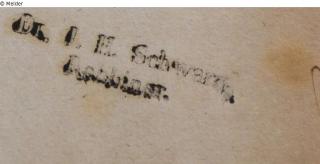 © Melder
Dr. I. M. Schwarz,
Assistent.